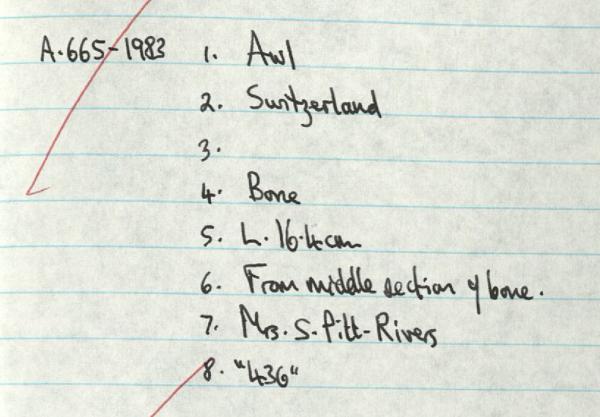 A.665-1983 1. Awl
2. Switzerland
3.
4. Bone
5. L. 16.4cm
6. From middle section of bone.
7. Mrs. S. Pitt-Rivers
8. "436"